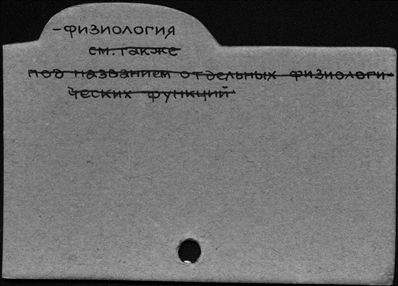 -физиология
см. также
под названием отдельных физиологи-
ческих функций